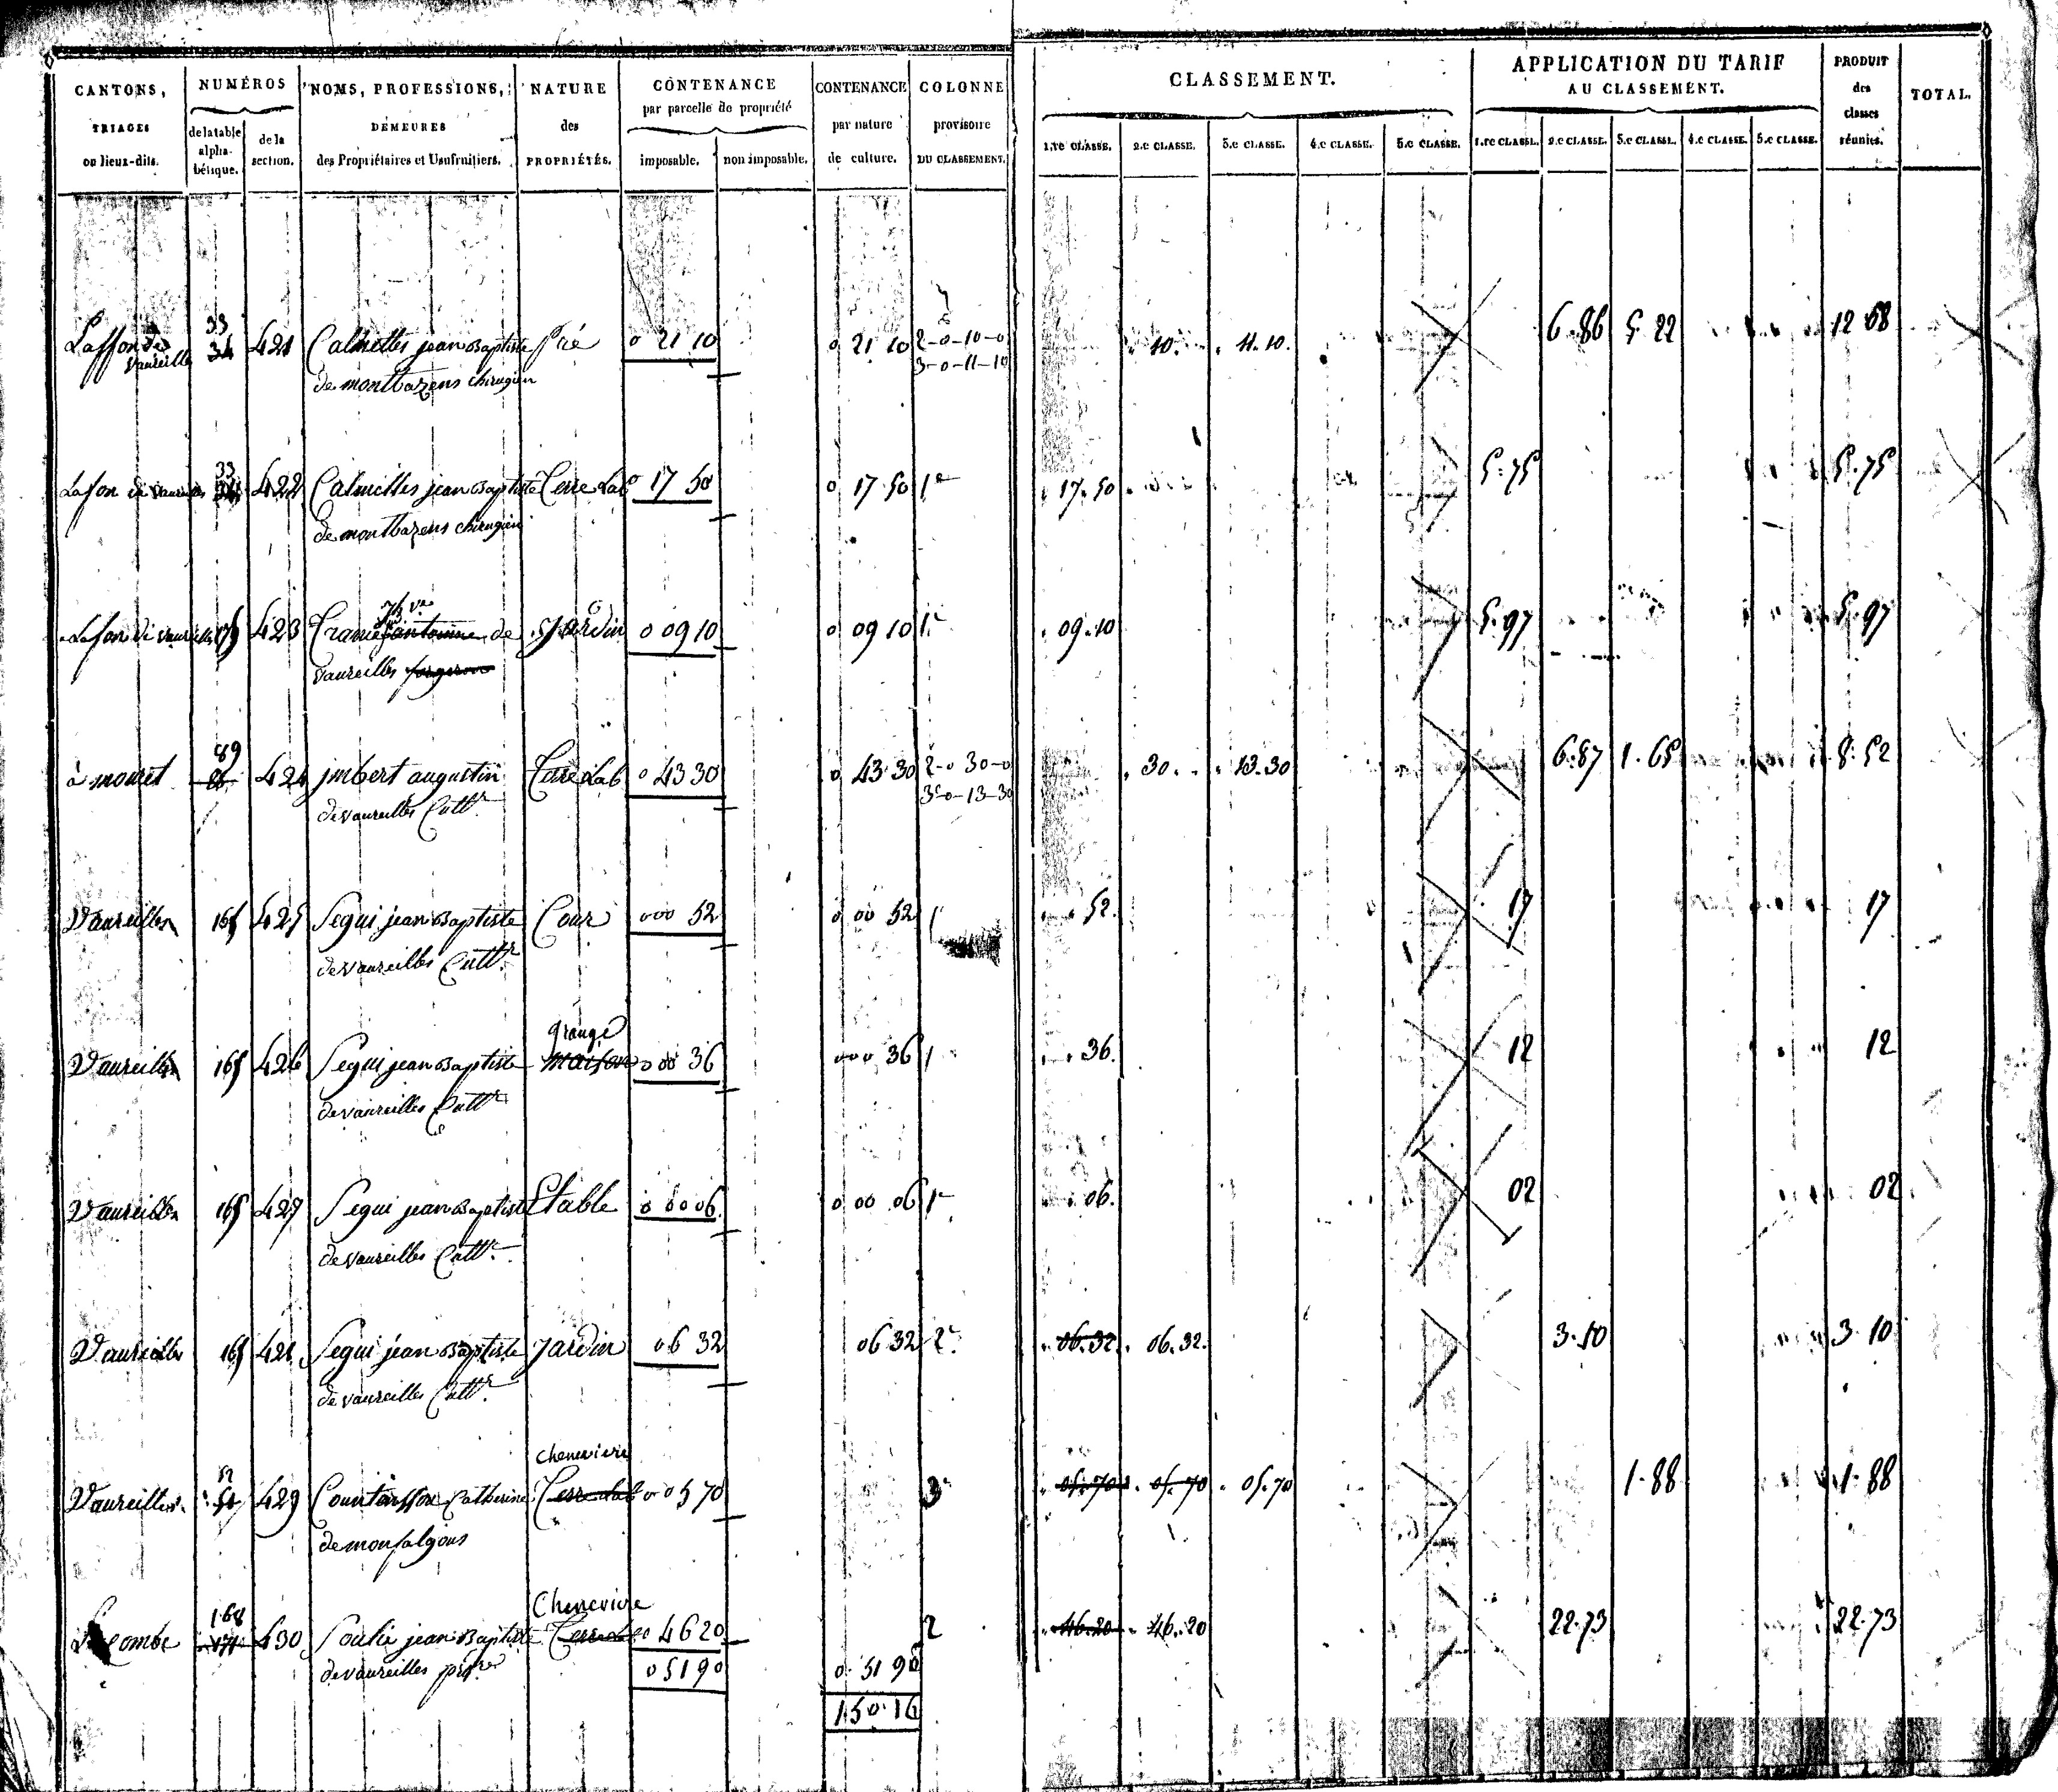 CANTONS, TRIAGES ou lieux-dits.
NUMÉROS
de la table alphabétique.
de la section.
NOMS, PROFESSIONS, DEMEURES des Propriétaires et Usufruitiers.
NATURE des PROPRIÉTÉS.
CONTENANCE par parcelle de propriété
imposable.
non imposable.
CONTENANCE par nature de culture.
COLONNE provisoire DU CLASSEMENT.
CLASSEMENT.
1.re CLASSE. 2.e CLASSE. 3.e CLASSE. 4.e CLASSE. 5.e CLASSE.
APPLICATION DU TARIF AU CLASSEMENT.
1.re CLASSE. 2.e CLASSE. 3.e CLASSE. 4.e CLASSE. 5.e CLASSE.
PRODUIT des classes réunies.
TOTAL.
33
Laffon de 34 421 Calmettes jean Baptiste Pré 0 21 10 0 21 10 2-0-10-0 10. 11.10. 6.86 5 22 12 08
Vaureilles de montbazens chirugien 3-0-11-10
33
Lafon de Vaureilles 34 422 Calmettes jean Baptiste Terre Lab 0 17 50 0 17 50 1e 17.50 5.75 5.75
de montbazens chirugien
Lafon de Vaureilles 423 antoinne de jardin 0 09 10 0 09 10 1e 09.10 5.97 5.97
vaureilles forgeron
89
à mouret 86 424 jmbert augustin Terre Lab 0 43 30 0 43 30 2-0 30-0 30. 13.30 6.87 1.65 8.52
de vaureilles Cultr. 3-0-13-30
Vaureilles 165 425 Segui jean Baptiste Cour 0 00 52 0 00 52 1 52. 17 17
de vaureilles Cultr.
grange
Vaureilles 165 426 Segui jean Baptiste maison 0 00 36 0 00 36 1 36. 12 12
de vaureilles Cultr
Vaureilles 165 427 Segui jean Baptiste Etable 0 00 06 0 00 06 1e 06. 02 02
de vaureilles Cultr.
Vaureilles 165 428 Segui jean Baptiste jardin 06 32 06 32 2e 06.32 06.32. 3.10 3.10
de vaureilles Cultr.
cheneviere
Vaureilles 429 Catherine Terre Lab 0 05 70 3e 05.70 05.70 05.70 1.88 1.88
de monsalgous
168 Cheneviere
Lacombe 430 Soulié jean Baptiste Terre Lab 0 46 20 2 46.20 46.20 22.73 22.73
de vaureilles
0 51 90 0 51 90
1.50.16